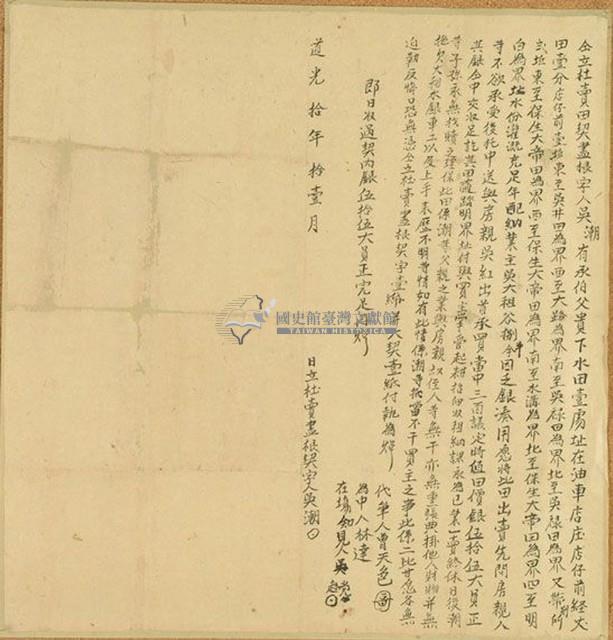 仝立杜賣田契盡根字人吳潮 有承伯父貴下水田壹處址在油車店庄店仔前經丈
田壹分店仔前壹坵東至吳井田為界西至大路為界南至吳祿田為界北至吳祿田為界又
貳坵東至保生大帝田為界西至保生大帝田為界南至水溝為界北至保生大帝田為界四至明
白為界址水份灌溉充足年配納業主吳大租谷捌斗今因乏銀湊用愿將此田出賣先問房親人
等不欲承受後托中送與房親吳紅出首承買當中三面議定時值田價銀伍拾伍大員正
其銀仝中交收足訖其田隨踏明界址付與買主掌管起耕招佃收租納課永為己業一賣終休日後潮
等子孫永無找贖之理保此田係潮等父親之業與房親叔侄人等無干亦無重張典掛他人財物並無
拖欠大租水銀車工以及上手來歷不明等情如有此情係潮等抵當不干買主之事此係二比甘愿各無
迫勒反悔口恐無憑仝立杜賣盡根契字壹紙 契壹紙付執為炤
即日收過契內銀伍拾伍大員正完足再炤
代筆人曾天色
為中人林達
在塲知見人吳
道光拾年拾壹月 日立杜賣盡根契字人吳潮
國史館臺灣文獻館
TAIWAN HISTORICA